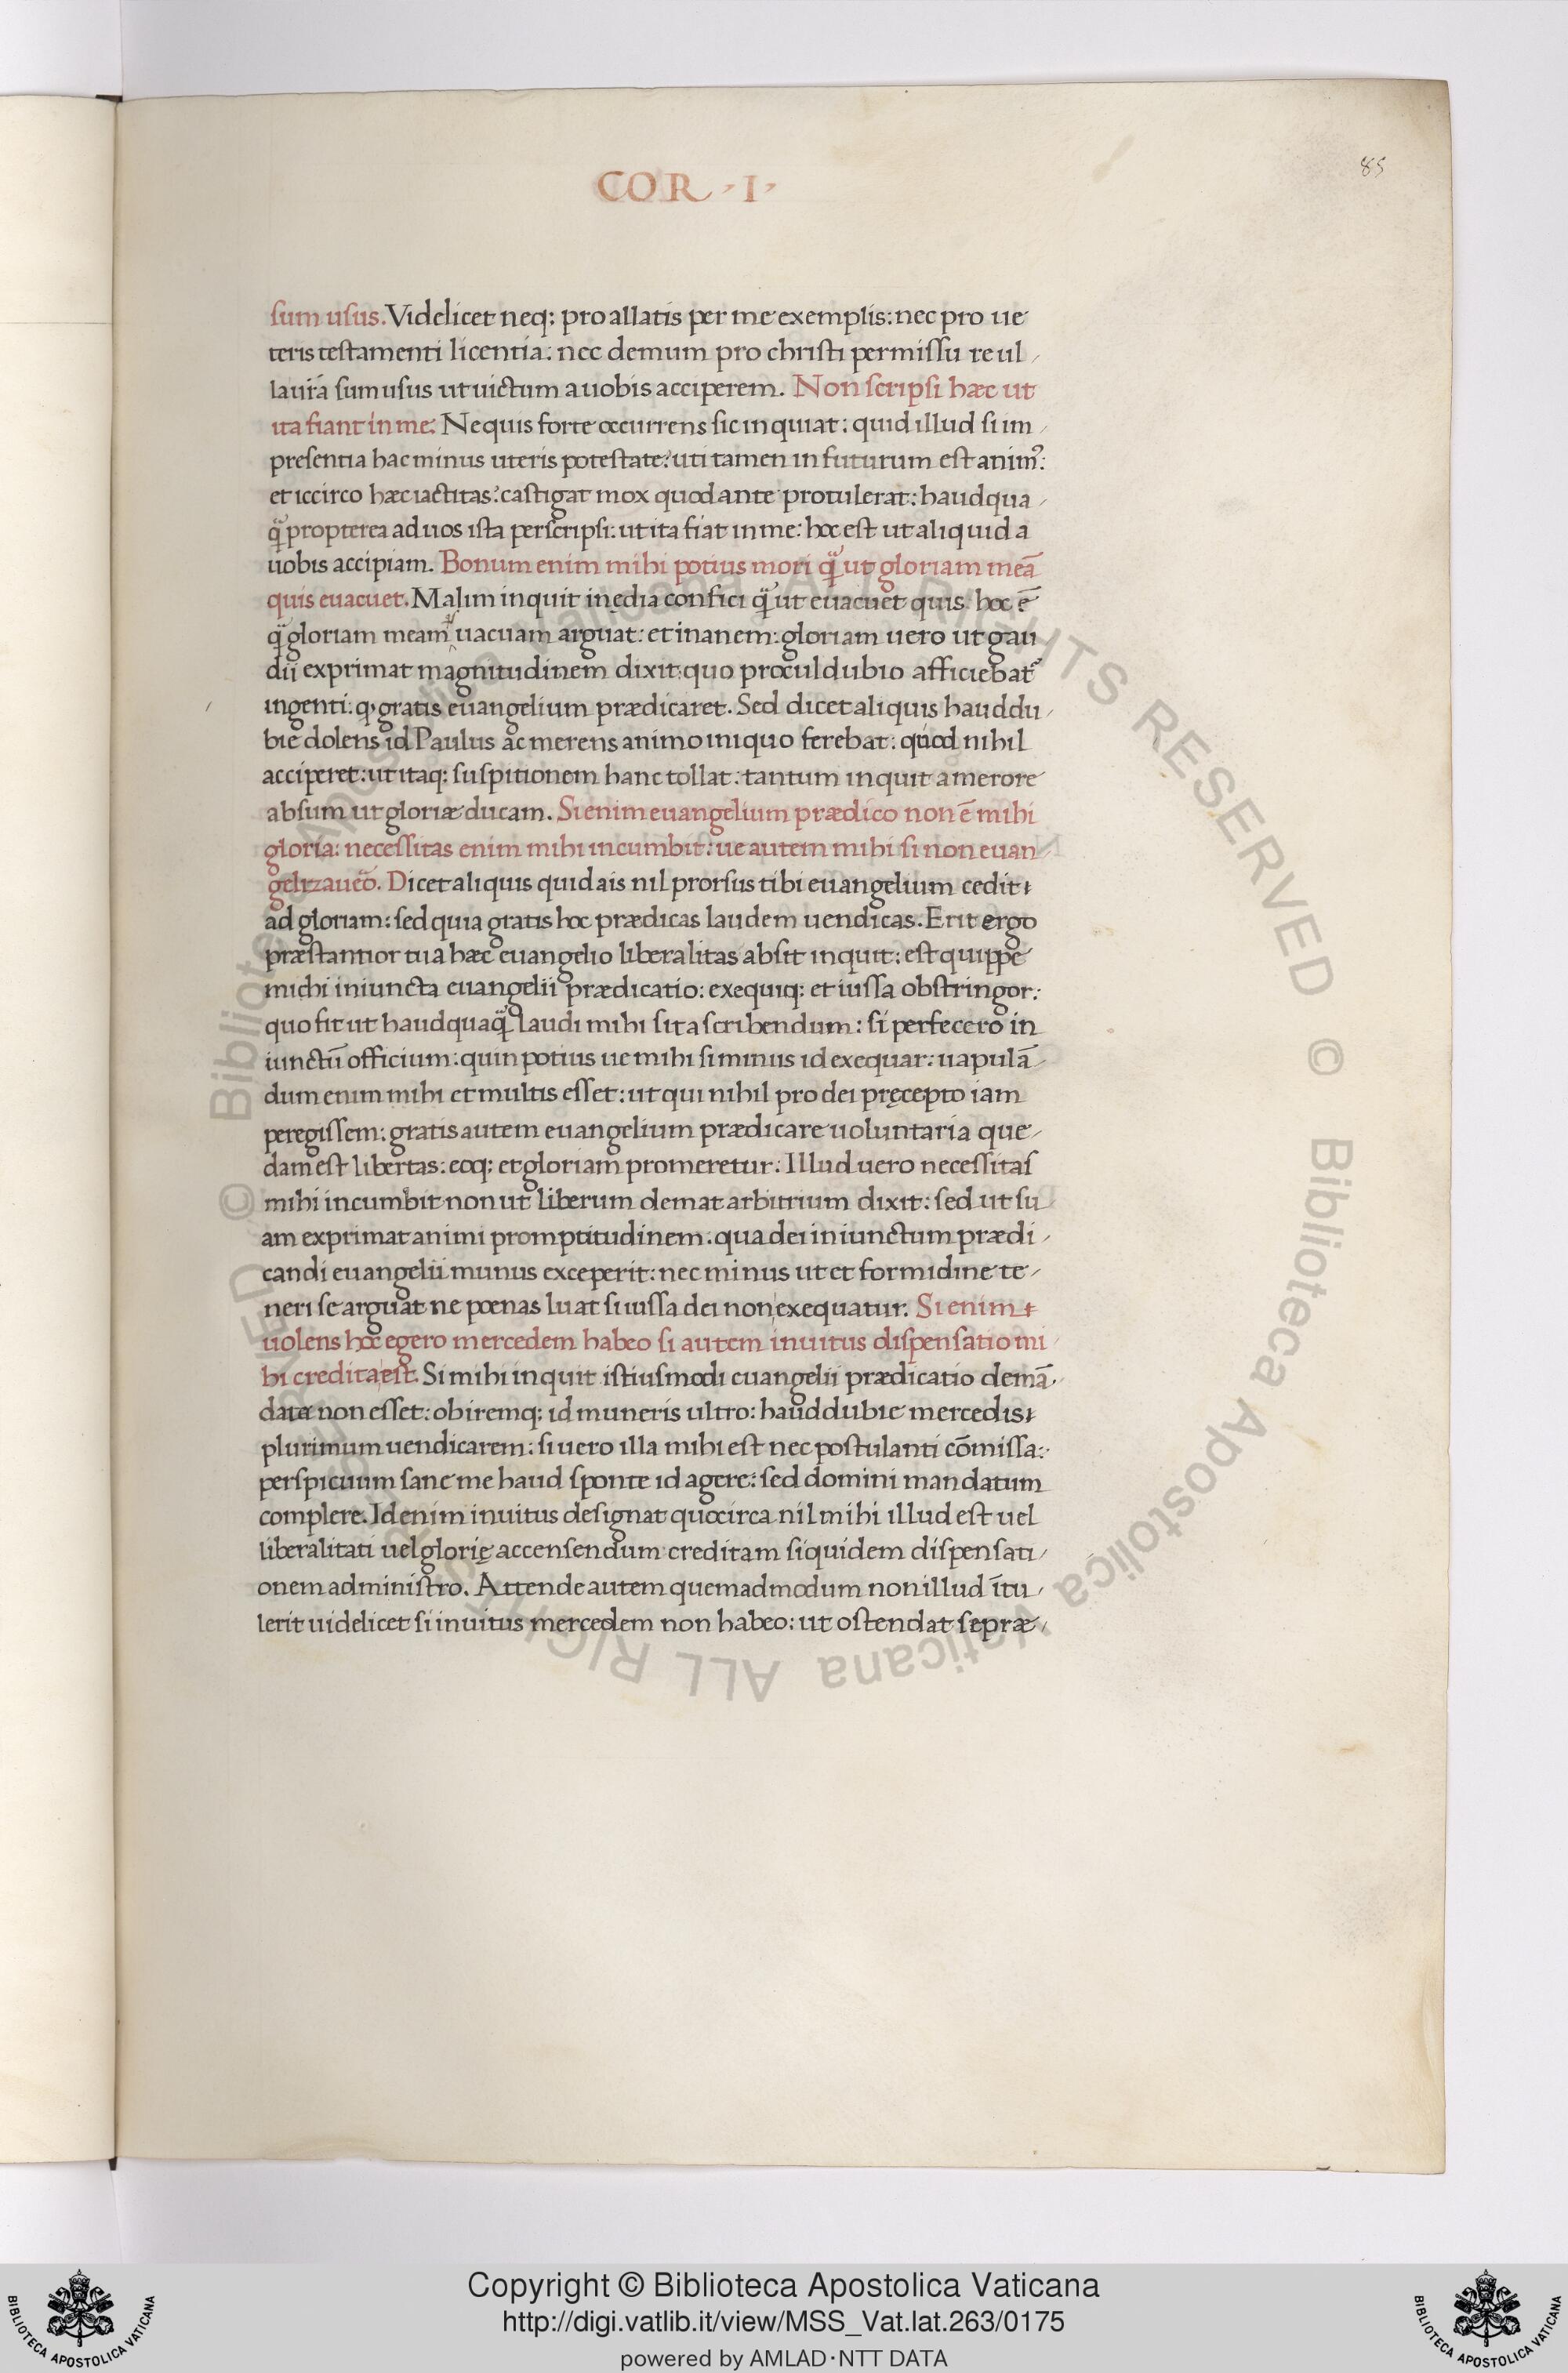 COR · I ·
85
sum usus. Videlicet neq; pro allatis per me exemplis: nec pro ue
teris testamenti licentia: nec demum pro christi permissu re ul
la ur̄a sum usus ut uictum a uobis acciperem. Non scripsi hæc ut
ita fiant in me. Ne quis forte occurrens sic inquiat: quid illud si im
presentia hac minus uteris potestate? uti tamen in futurum est anim9:
et iccirco hæc iactitas? castigat mox quod ante protulerat: haud qua
q̄ propterea ad uos ista perscripsi: ut ita fiat in me: hoc est ut aliquid a
uobis accipiam. Bonum enim mihi potius mori q̄ ut gloriam meā
quis euacuet. Malim inquit inędia confici q̄ ut euacuet quis. hoc ē
q̄ gloriam meam uacuam arguat: et inanem: gloriam uero ut gau
dii exprimat magnitudinem dixit: quo procul dubio afficiebat᷑
ingenti: q> gratis euangelium prædicaret. Sed dicet aliquis haud du
bie dolens id Paulus ac merens animo iniquo ferebat: quod nihil
acciperet: ut itaq; suspitionem hanc tollat: tantum inquit a merore
absum ut gloriæ ducam. Si enim euangelium prædico non ē mihi
gloria: necessitas enim mihi incumbit: ue autem mihi si non euan
gelizauero. Dicet aliquis quid ais nil prorsus tibi euangelium cedit
ad gloriam: sed quia gratis hoc prædicas laudem uendicas. Erit ergo
præstantior tua hæc euangelio liberalitas absit inquit: est quippe
michi iniuncta euangelii prædicatio: exequiq; et iussa obstringor:
quo fit ut haudquaq̄ laudi mihi sit ascribendum: si perfecero in
iunctū officium: quin potius ue mihi si minus id exequar: uapulā
dum enim mihi et multis esset: ut qui nihil pro dei pręcepto iam
peregissem: gratis autem euangelium prædicare uoluntaria que
dam est libertas: eoq; et gloriam promeretur. Illud uero necessitas
mihi incumbit non ut liberum demat arbitrium dixit: sed ut su
am exprimat animi promptitudinem. qua dei iniunctum prædi
candi euangelii munus exceperit: nec minus ut et formidine te
neri se arguat ne poenas luat si iussa dei non exequatur. Si enim
uolens hoc egero mercedem habeo si autem inuitus dispensatio mi
hi credita est. Si mihi inquit istiusmodi euangelii prædicatio demā
data non esset: obiremq; id muneris ultro: haud dubie mercedis
plurimum uendicarem: si uero illa mihi est nec postulanti cōmissa:
perspicuum sane me haud sponte id agere: sed domini mandatum
complere. Id enim inuitus designat quocirca nil mihi illud est uel
liberalitati uel glorię accensendum creditam siquidem dispensati
onem administro. Attende autem quemadmodum non illud ītu
lerit uidelicet si inuitus mercedem non habeo: ut ostendat se præ
© Biblioteca Apostolica Vaticana ALL RIGHTS RESERVED © Biblioteca Apostolica Vaticana ALL RIGHTS RESERVED
Copyright © Biblioteca Apostolica Vaticana
http://digi.vatlib.it/view/MSS_Vat.lat.263/0175
powered by AMLAD·NTT DATA
BIBLIOTECA APOSTOLICA VATICANA
BIBLIOTECA APOSTOLICA VATICANA